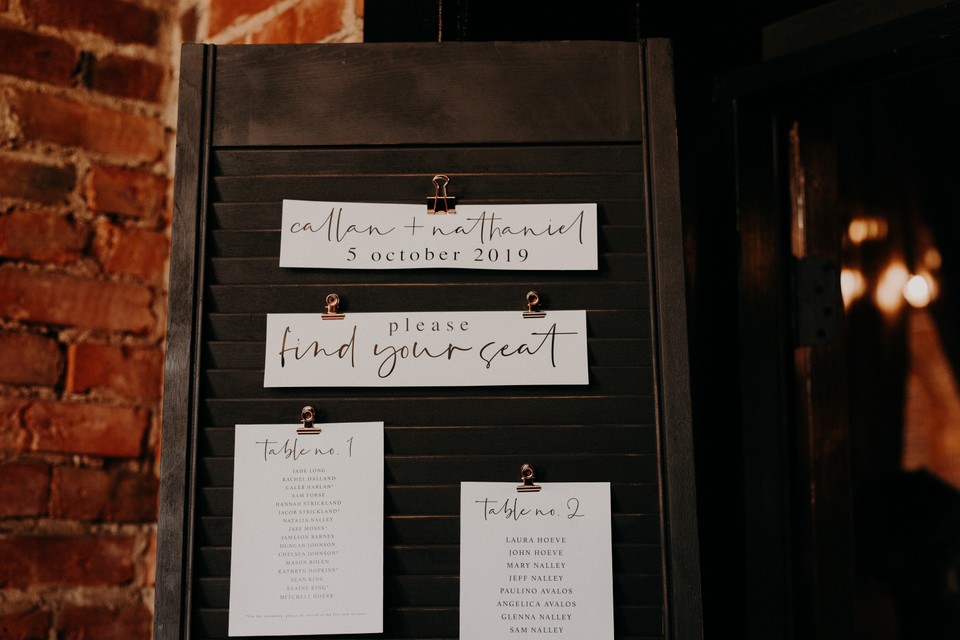 callan + nathaniel
5 october 2019
please
find your seat
table no. 1
JADE LONG
RACHEL DALLAND
CALEB HARLAN*
SAM FORSE
HANNAH STRICKLAND
JACOB STRICKLAND*
NATALIA NALLEY
JAKE MOSES*
JAMESON BARNES
DUNCAN JOHNSON
CHELSEA JOHNSON*
MASON BOLEN
KATHRYN HOPKINS*
SEAN KING
ELAINE KING*
MITCHELL HOEVE
table no. 2
LAURA HOEVE
JOHN HOEVE
MARY NALLEY
JEFF NALLEY
PAULINO AVALOS
ANGELICA AVALOS
GLENNA NALLEY
SAM NALLEY